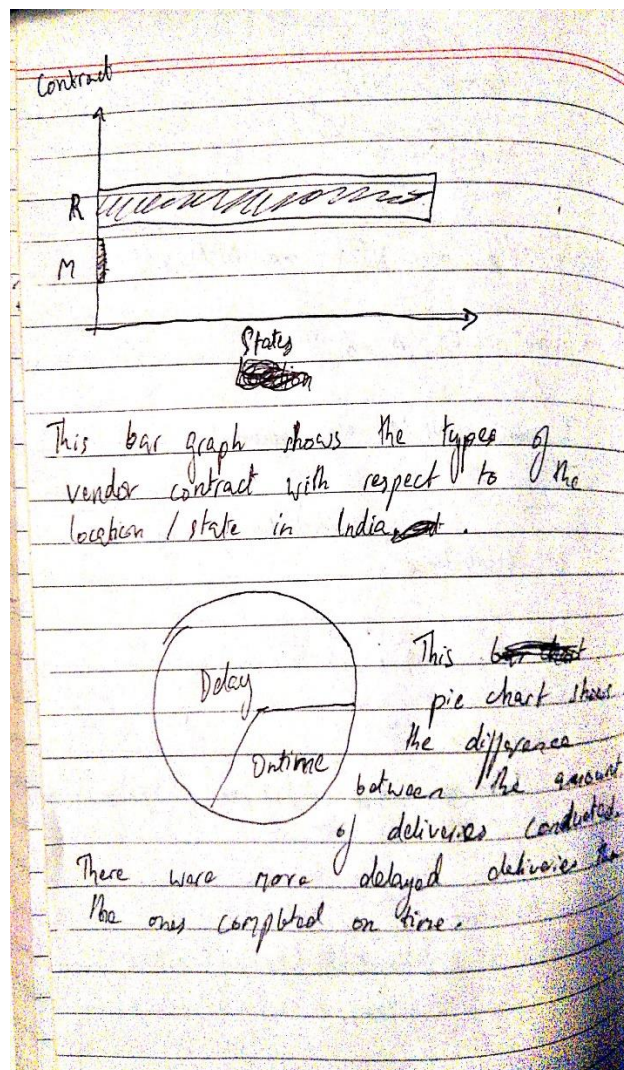 Contract
R
M
States
This bar graph shows the types of
vendor contract with respect to the
location / state in India .
Delay
Ontime
This
pie chart shows
the difference
between the amount
of deliveries conducted.
There were more delayed deliveries
the ones completed on time.